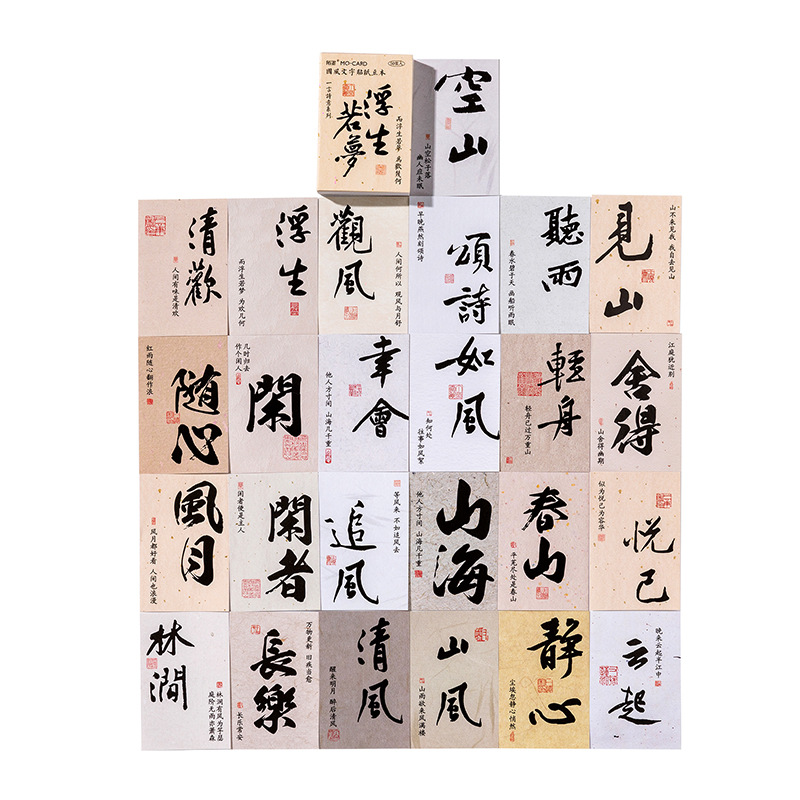 陌派 MO-CARD
國風文字貼紙立本
一言詩意系列
浮生
若夢
而浮生若夢
為歡幾何
空山
山空松子落
幽人应未眠
清歡
人间有味是清欢
浮生
而浮生若梦
为欢几何
觀風
人间何所以
观风与月舒
頌詩
早晚燕然刻颂诗
聽雨
春水碧于天
画船听雨眠
見山
山不来见我
我自去见山
随心
红雨随心翻作浪
閑
几时归去
作个闲人
幸會
他人方寸间
山海几千重
如風
知何处
往事如风絮
輕舟
轻舟已过万重山
舍得
江庭犹近别
山舍得幽期
風月
风月都好看
人间也浪漫
閑者
闲者便是主人
追風
等风来
不如追风去
山海
他人方寸间
山海几千重
春山
平芜尽处是春山
悦己
似为悦己为容华
林澗
林涧有风为竽瑟
庭阶无雨亦萧森
長樂
万物更新
旧疾当愈
长乐常安
清風
醒来明月
醉后清风
山風
山雨欲来风满楼
静心
尘埃忽静心悄然
云起
晚来云起半江中